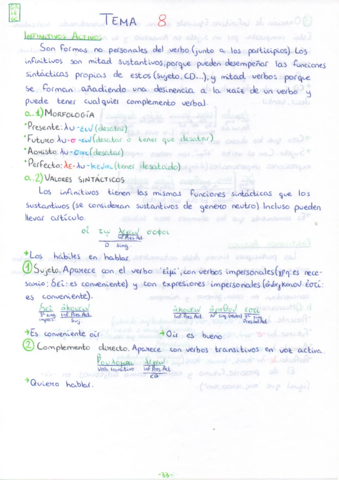 TEMA 8
INFINITIVOS ACTIVOS
Son formas no personales del verbo (junto a los participios). Los
infinitivos son mitad sustantivos, porque pueden desempeñar las funciones
sintácticas propias de estos (sujeto, CD...), y mitad verbos porque
se forman añadiendo una desinencia a la raíz de un verbo y
puede tener cualquier complemento verbal.
a.1) MORFOLOGÍA
·Presente: λυ-ειν (desatar)
·Futuro: λυ-σ-ειν (desatar o tener que desatar)
·Aoristo: λυ-σαι (desatar)
·Perfecto: λε-λυ-κεναι (tener desatado)
a.2) VALORES SINTÁCTICOS
Los infinitivos tienen las mismas funciones sintácticas que los
sustantivos (se consideran sustantivos de género neutro). Incluso pueden
llevar artículo.
οἱ λεγειν σοφοι
Inf. Pres. Act.
→Los hábiles en hablar.
① Sujeto. Aparece con el verbo εἰμι, con verbos impersonales (χρη: es nece-
sario; δεῖ: es conveniente) y con expresiones impersonales (ἀναγκαιον ἐστι:
es conveniente).
Δεῖ ἀκουειν ἀκουειν ἀγαθον ἐστι
→Es conveniente oír →Oír es bueno
② Complemento directo. Aparece con verbos transitivos en voz activa.
Βουλομαι λεγειν
verbo transitivo Inf. Pres. Act.
CD
→Quiero hablar.
-33-